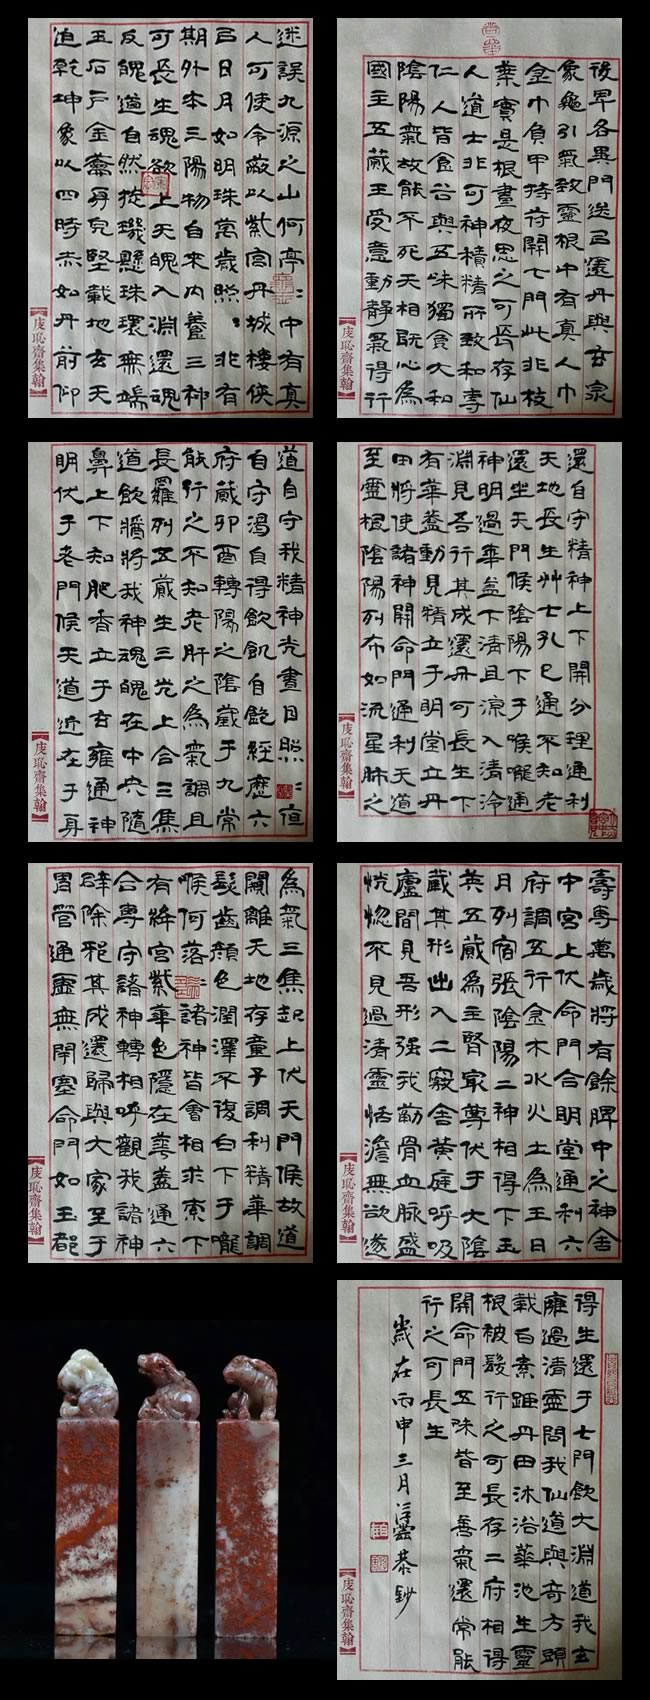 迷誤九源之山何亭〻中有真
人可使令蔽以紫宮丹城樓俠
㠯日月如明珠萬歲照〻非有
期外本三陽物自來內養三神
可長生魂欲上天魄入淵還魂
反魄道自然旋璣懸珠環無端
玉石戶金籥身兒堅載地玄天
迫乾坤象以四時赤如丹前仰
虔恥齋集翰
後卑各異門送㠯還丹與玄泉
象龜引氣致靈根中有真人巾
金巾負甲持符開七門此非枝
葉實是根晝夜思之可長存仙
人道士非可神積精所致和專
仁人皆食谷與五味獨食大和
陰陽氣故能不死天相既心為
國主五藏王受意動靜氣得行
虔恥齋集翰
道自守我精神光晝日照〻夜
自守渴自得飲飢自飽經歷六
府藏卯酉轉陽之陰藏于九常
能行之不知老肝之為氣調且
長羅列五藏生三光上合三焦
道飲醬將我神魂魄在中央隨
鼻上下知肥香立于玄雍通神
明伏于老門候天道近在于身
虔恥齋集翰
還自守精神上下開分理通利
天地長生艸士孔已通不知老
還坐天門候陰陽下于喉嚨通
神明過華盖下清且涼入清泠
淵見吾行其成還丹可長生下
有華蓋動見精立于明堂立丹
田將使諸神開命門通利天道
至靈根陰陽列布如流星肺之
虔恥齋集翰
為氣三焦起上伏天門候故道
闚離天地存童子調利精華調
髮齒顏色潤澤不復白下于嚨
喉何落〻諸神皆會相求索下
有絳宮紫華色隱在華蓋通六
合專守諸神轉相呼觀我諸神
辟除邪其成還歸與大家至于
胃管通虛無閉塞命門如玉都
虔恥齋集翰
壽專萬歲將有餘脾中之神舍
中宮上伏命門合明堂通利六
府調五行金木水火土為王日
月列宿張陰陽二神相得下玉
英五藏為主腎最尊伏于大陰
藏其形出入二竅舍黃庭呼吸
廬間見吾形强我筋骨血脈盛
恍惚不見過清靈恬澹無欲遂
虔恥齋集翰
得生還于七門飲大淵道我玄
雍過清靈問我仙道與奇方頭
載白素距丹田沐浴華池生靈
根被髮行之可長存二府相得
開命門五味皆至善氣還常能
行之可長生
歲在丙申三月䨩恭鈔
虔恥齋集翰